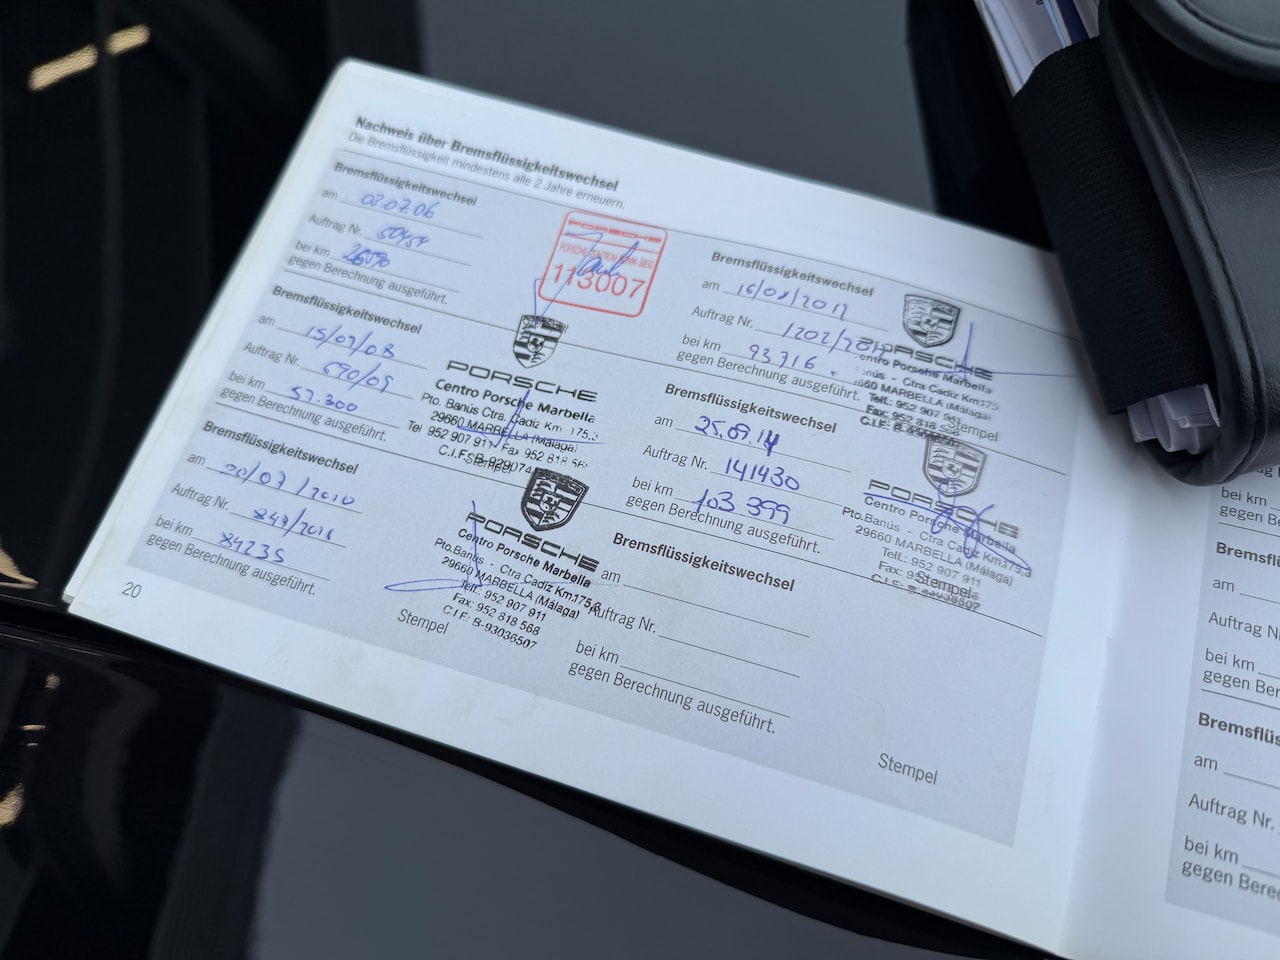 Nachweis über Bremsflüssigkeitswechsel
Die Bremsflüssigkeit mindestens alle 2 Jahre erneuern.
Bremsflüssigkeitswechsel
am 03.07.06
Auftrag Nr.
bei km
gegen Berechnung ausgeführt.
PORSCHE
PORSCHE ZENTRUM BONN-SIEG
113007
Bremsflüssigkeitswechsel
am 15/07/08
Auftrag Nr. 690/08
bei km 57.300
gegen Berechnung ausgeführt.
PORSCHE
Centro Porsche Marbella
Pto. Banús Ctra. Cadiz Km. 175,3
29660 MARBELLA (Málaga)
Tel 952 907 911 - Fax 952 818 568
C.I.F.
Stempel
Bremsflüssigkeitswechsel
am 20/07/2010
Auftrag Nr.
bei km 84235
gegen Berechnung ausgeführt.
PORSCHE
Centro Porsche Marbella
Pto.Banús - Ctra Cadiz Km.175,3
29660 MARBELLA (Málaga)
Telf.: 952 907 911
Fax: 952 818 568
C.I.F.: B-93036507
Stempel
20
Bremsflüssigkeitswechsel
am
Auftrag Nr.
bei km 93716.
gegen Berechnung ausgeführt.
PORSCHE
Centro Porsche Marbella
Banús - Ctra Cadiz Km.175
29660 MARBELLA (Málaga)
Telf.: 952 907 911
Fax: 952 818 568
C.I.F.:
Stempel
Bremsflüssigkeitswechsel
am 25.09.14
Auftrag Nr. 141430
bei km 103 399
gegen Berechnung ausgeführt.
PORSCHE
Centro Porsche Marbella
Pto.Banús - Ctra Cadiz Km.175,3
29660 MARBELLA (Málaga)
Telf.: 952 907 911
Fax:
C.I.F.: B-93036507
Stempel
Bremsflüssigkeitswechsel
am
Auftrag Nr.
bei km
gegen Berechnung ausgeführt.
Stempel
bei km
gegen
am
Auftrag Nr.
bei km
am
Auftrag Nr.
bei km